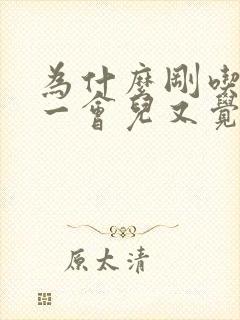 為什麼剛喫
一會兒又覺
原太清